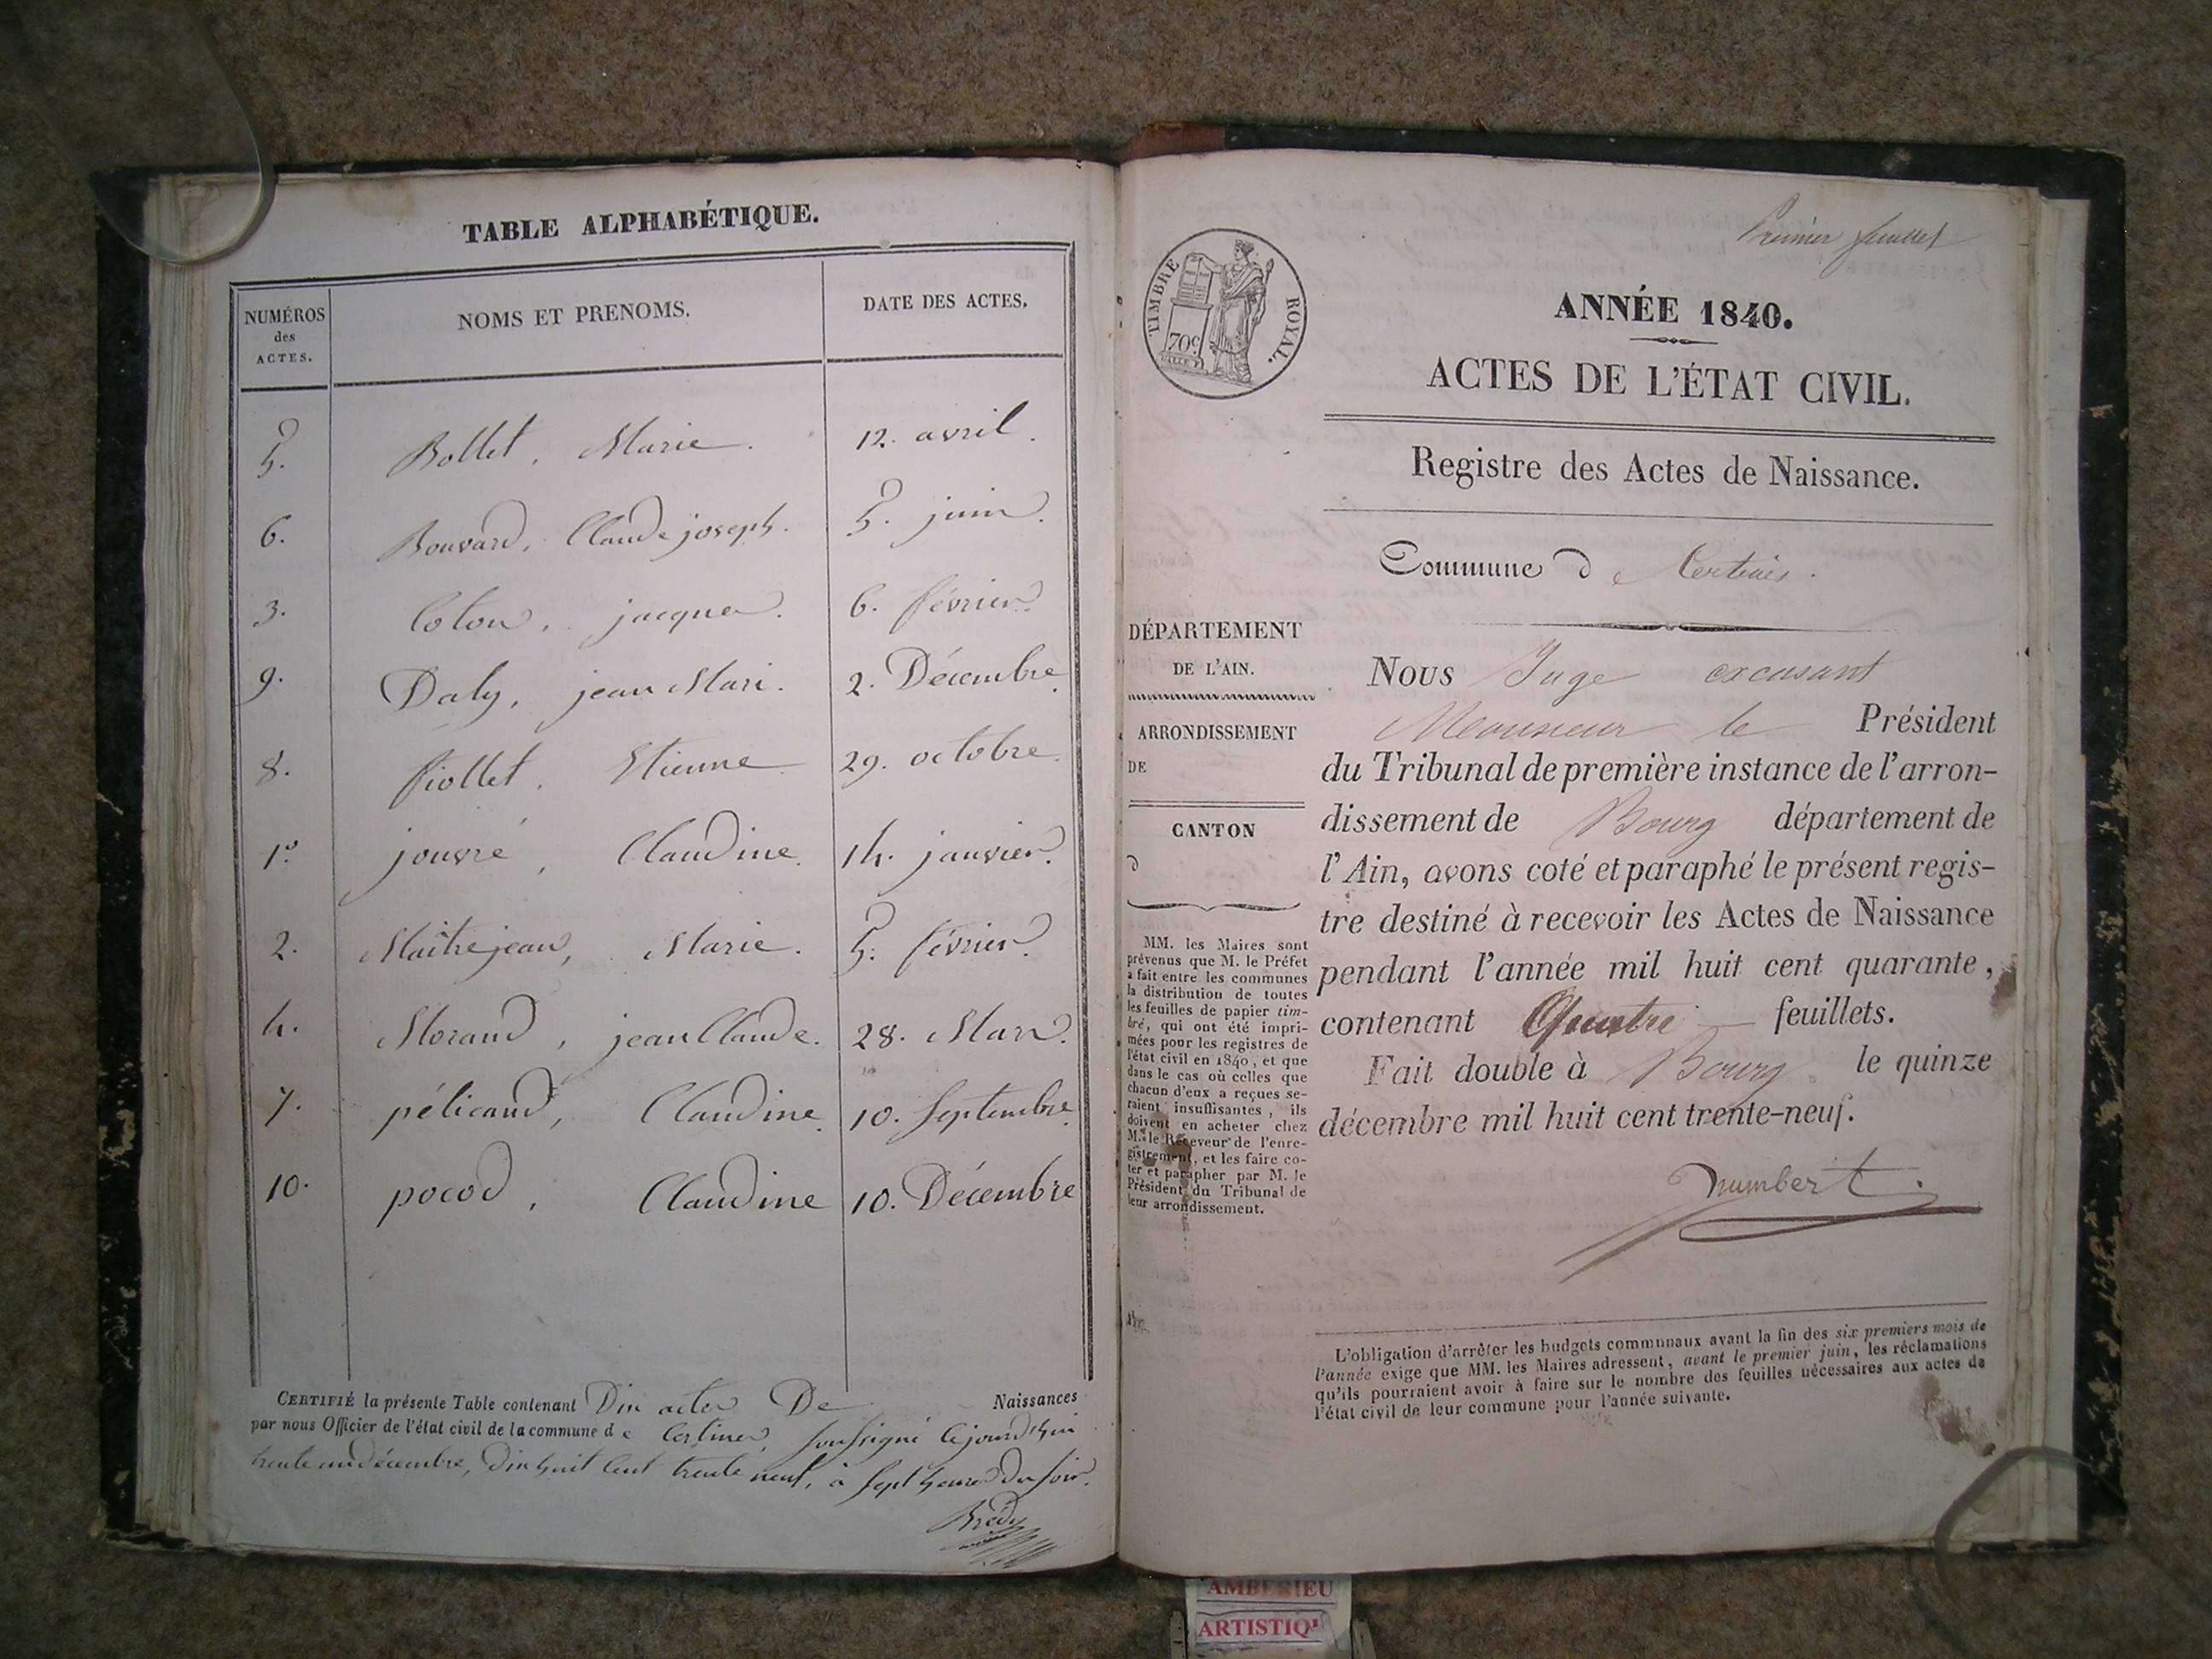 TABLE ALPHABÉTIQUE.
NUMÉROS
des
ACTES.
NOMS ET PRENOMS.
DATE DES ACTES.
5. Bollet, Marie. 12. avril.
6. Bouvard, Claude joseph. 5. juin.
3. Coton, jacques. 6. février.
9. Daly, jean Mari. 2. Décembre.
8. fiollet. Etienne 29. octobre.
1.º jouvré, Claudine. 14. janvier.
2. Maîtrejean, Marie. 5. février.
4. Morand, jean Claude. 28. Mars.
7. pélicand, Claudine. 10. Septembre.
10. pocod, Claudine 10. Décembre
CERTIFIÉ la présente Table contenant Dix actes De Naissances
par nous Officier de l'état civil de la commune de Certines, soussigné Cejourd'hui
trente un décembre, Dix huit Cent trente neuf, à Sept heures Du soir.
Brédy
Premier feuillet
TIMBRE ROYAL.
70c
ANNÉE 1840.
ACTES DE L'ÉTAT CIVIL.
Registre des Actes de Naissance.
Commune de Certines.
DÉPARTEMENT
DE L'AIN.
ARRONDISSEMENT
DE
CANTON
d
MM. les Maires sont
prévenus que M. le Préfet
a fait entre les communes
la distribution de toutes
les feuilles de papier tim-
bré, qui ont été impri-
mées pour les registres de
l'état civil en 1840, et que
dans le cas où celles que
chacun d'eux a reçues se-
raient insuffisantes, ils
doivent en acheter chez
M. le Receveur de l'enre-
gistrement, et les faire co-
ter et parapher par M. le
Président du Tribunal de
leur arrondissement.
Nous Juge excusant
Monsieur le Président
du Tribunal de première instance de l'arron-
dissement de Bourg département de
l'Ain, avons coté et paraphé le présent regis-
tre destiné à recevoir les Actes de Naissance
pendant l'année mil huit cent quarante,
contenant Quatre feuillets.
Fait double à Bourg le quinze
décembre mil huit cent trente-neuf.
humbert
L'obligation d'arrêter les budgets communaux avant la fin des six premiers mois de
l'année exige que MM. les Maires adressent, avant le premier juin, les réclamations
qu'ils pourraient avoir à faire sur le nombre des feuilles nécessaires aux actes de
l'état civil de leur commune pour l'année suivante.
AMBERIEU
ARTISTIQ